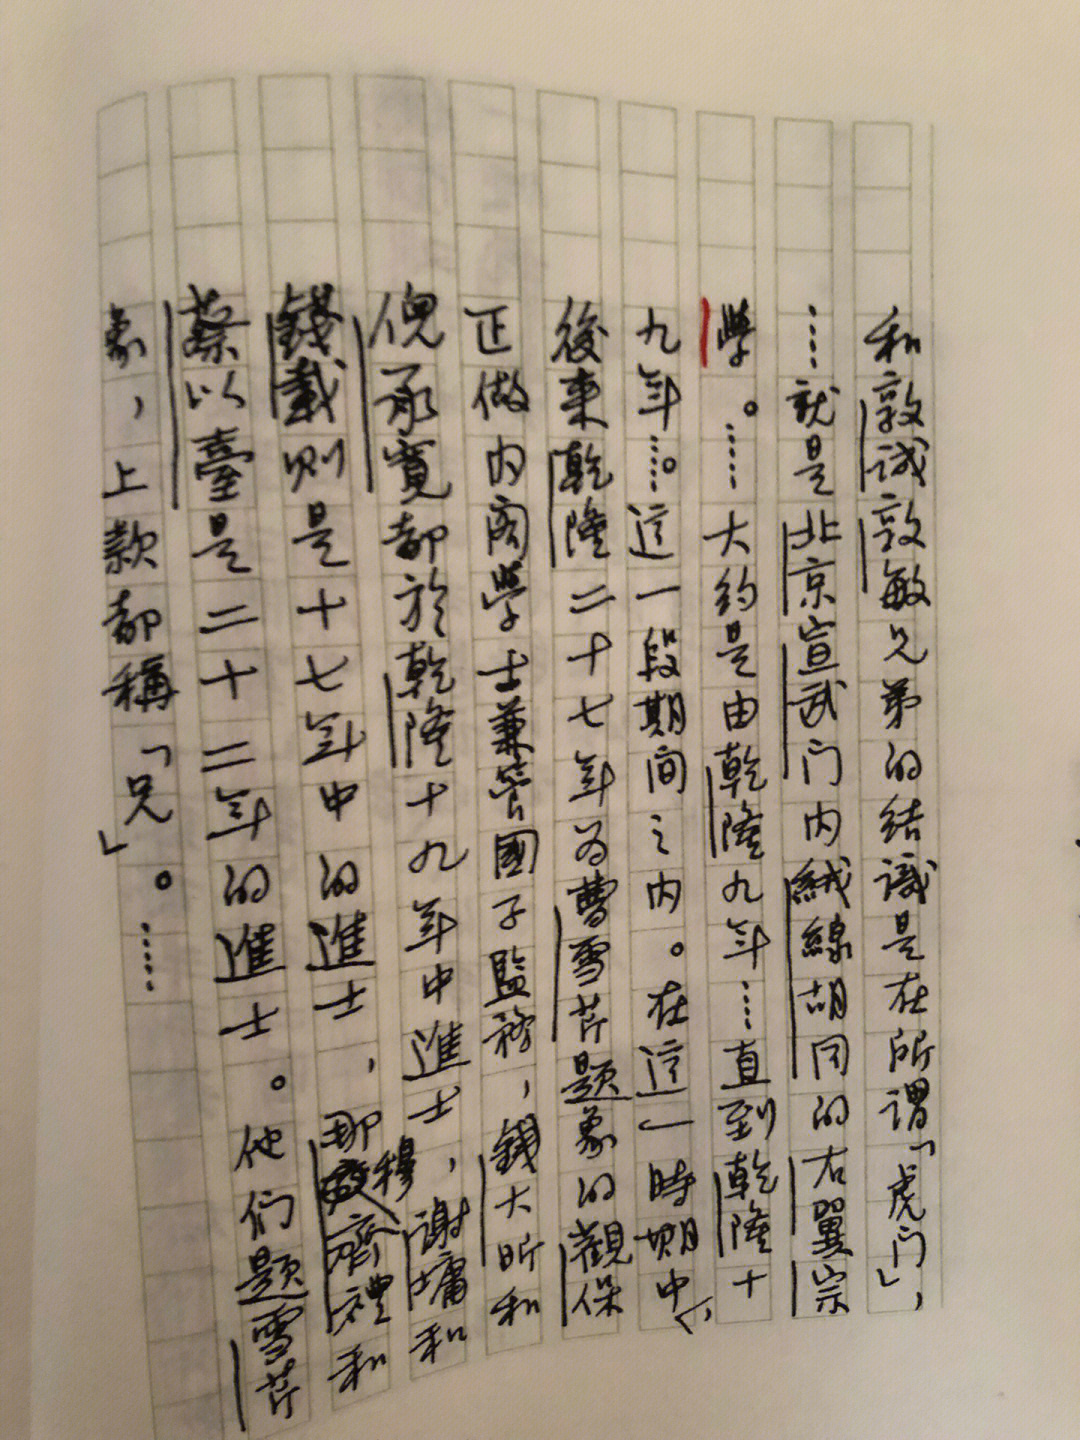 和敦诚敦敏兄弟的结識是在所谓「虎门」，
……就是北京宣武门内絨線胡同的右翼宗
學。……大约是由乾隆九年……直到乾隆十
九年……。这一段期间之内。在這一時期中，
後来乾隆二十七年为曹雪芹题象的觀保
正做内阁學士兼管國子監務，錢大昕和
倪承寬都於乾隆十九年中進士，謝墉和
錢載则是十七年中的進士，那穆齊禮和
蔡以臺是二十二年的進士。他们题雪芹
象，上款都稱「兄」。……